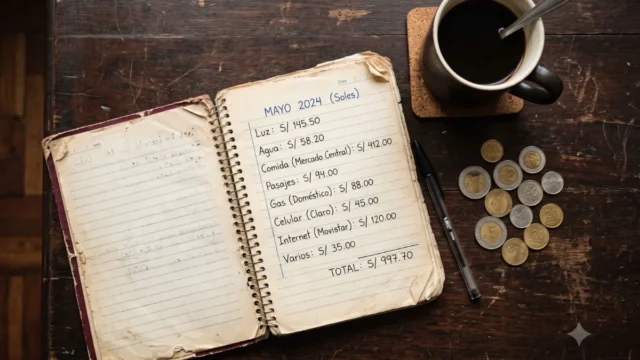 MAYO 2024 (Soles)
Luz: S/ 145.50
Agua: S/ 58.20
Comida (Mercado Central): S/ 412.00
Pasajes: S/ 94.00
Gas (Doméstico): S/ 88.00
Celular (Claro): S/ 45.00
Internet (Movistar): S/ 120.00
Varios: S/ 35.00
TOTAL: S/ 997.70